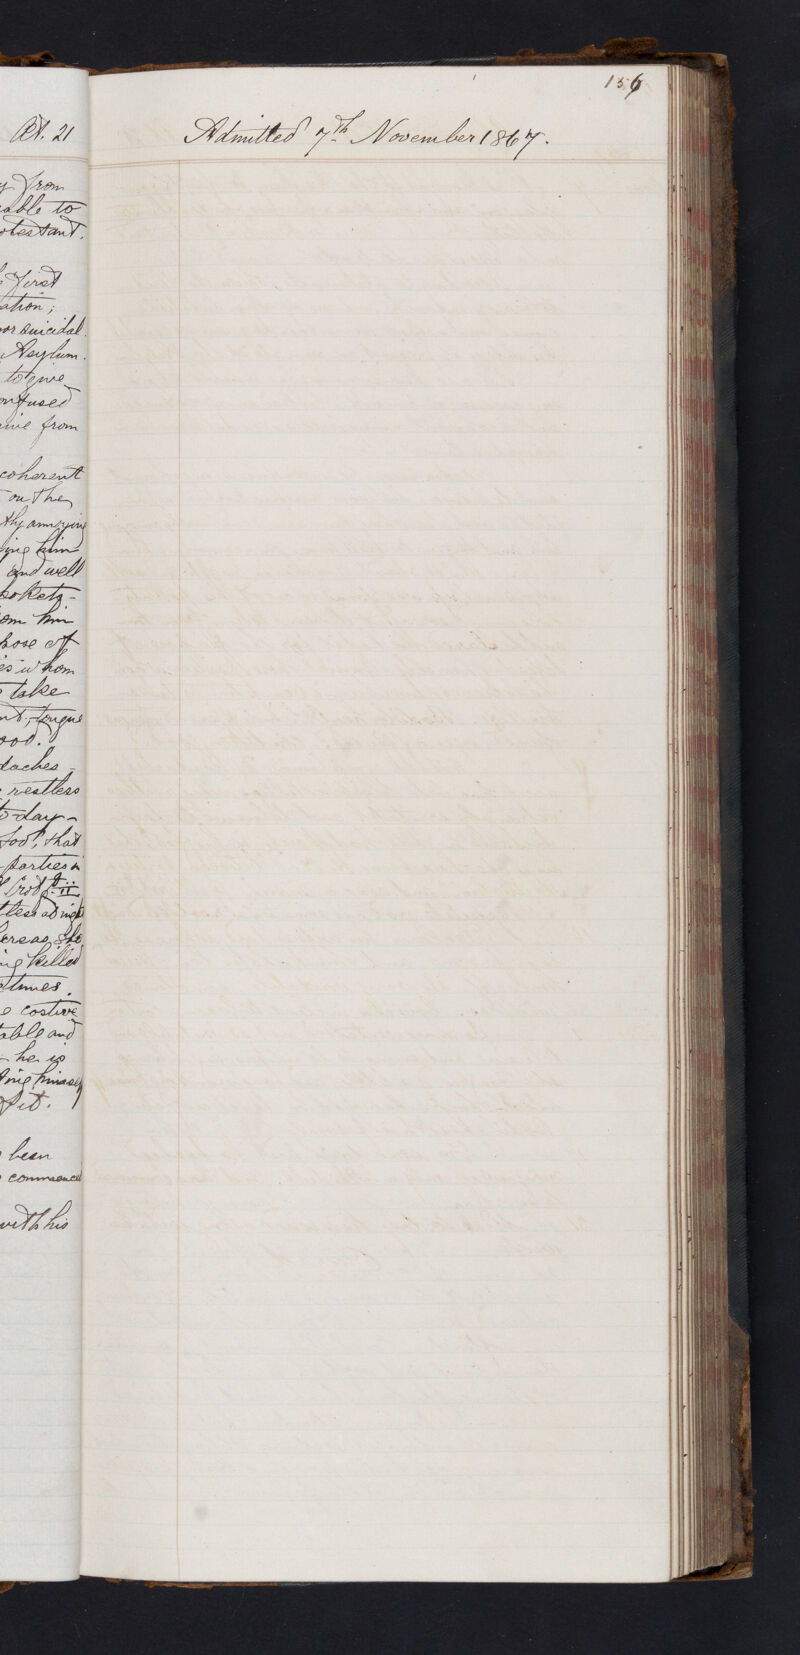 Æt. 21
from
able to
otestant.
first
ation;
nor suicidal.
Asylum.
to give
onfused
from
coherent
on the
thy annoying
ing him
and well
pockets-
om him
hose of
es whom
take
nt; tongue
ood.
daches-
restless
to day-
food; that
parties
tless at night
hereas, she
ng killed
times.
e costive
table and
he is
ting himself
fit.
been
commenced
with his
156
Admitted 7th November 1867.